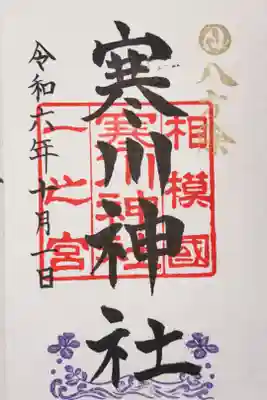 八方除
寒川神社
相模國
寒川神社
一之宮
令和六年十月一日